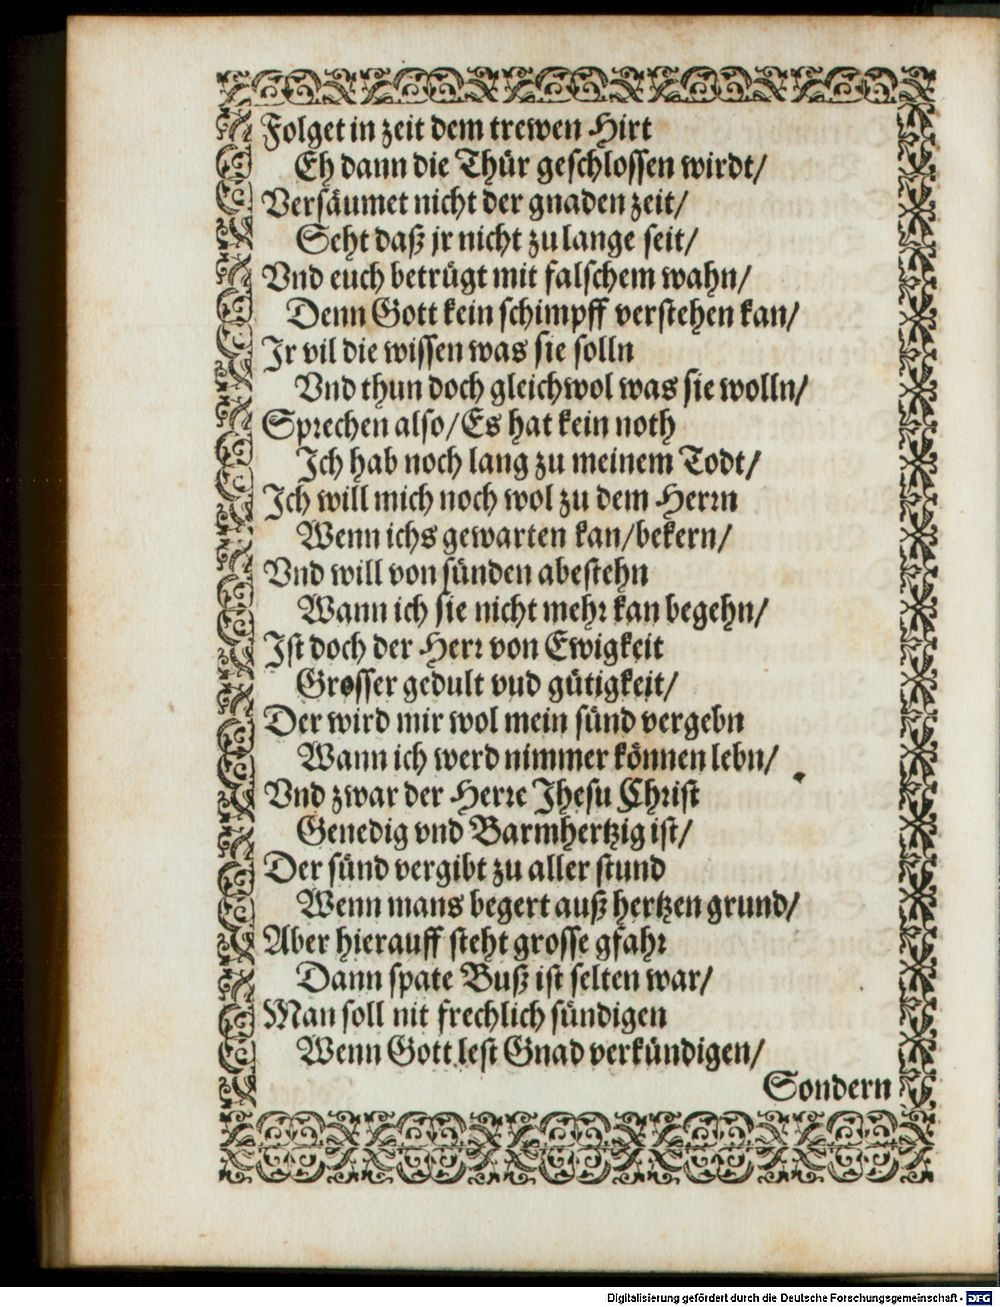 Folget in zeit dem trewen Hirt
Eh dann die Thür geschlossen wirdt/
Versäumet nicht der gnaden zeit/
Seht daß jr nicht zu lange seit/
Vnd euch betrügt mit falschem wahn/
Denn Gott kein schimpff verstehen kan/
Jr vil die wissen was sie solln
Vnd thun doch gleichwol was sie wolln/
Sprechen also/Es hat kein noth
Ich hab noch lang zu meinem Todt/
Ich will mich noch wol zu dem Herrn
Wenn ichs gewarten kan/bekern/
Vnd will von sünden abestehn
Wann ich sie nicht mehr kan begehn/
Ist doch der Herr von Ewigkeit
Grosser gedult vud gütigkeit/
Der wird mir wol mein sünd vergebn
Wann ich werd nimmer können lebn/
Vnd zwar der Herre Jhesu Christ
Genedig vnd Barmhertzig ist/
Der sünd vergibt zu aller stund
Wenn mans begert auß hertzen grund/
Aber hierauff steht grosse gfahr
Dann spate Buß ist selten war/
Man soll nit frechlich sündigen
Wenn Gott lest Gnad verkündigen/
Sondern
Digitalisierung gefördert durch die Deutsche Forschungsgemeinschaft - DFG